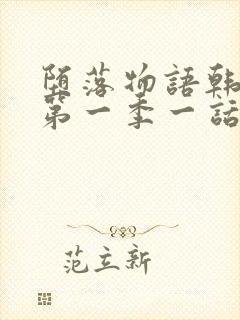 堕落物語韩
第一季一話
范立新